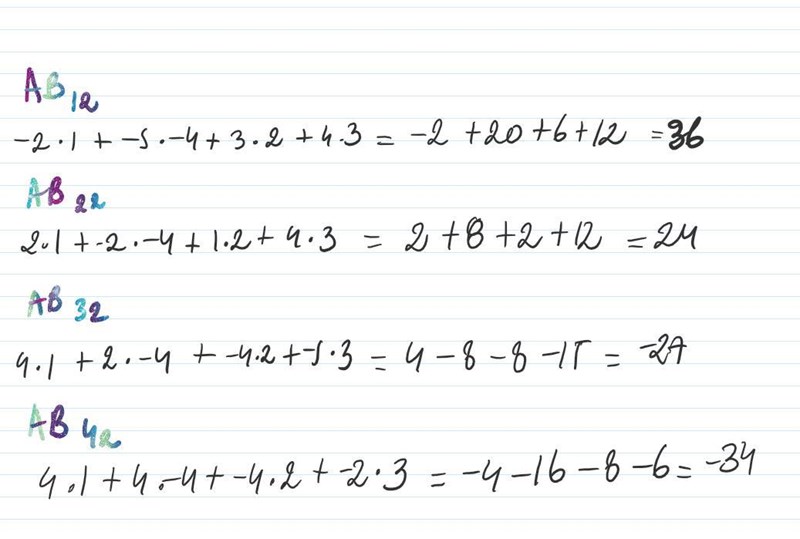 AB12
-2·1 + -5·-4 + 3·2 + 4·3 = -2 +20 +6 +12 = 36
AB22
2·1 + -2·-4 + 1·2 + 4·3 = 2 +8 +2 +12 = 24
AB32
4·1 + 2·-4 + -4·2 + -5·3 = 4 -8 -8 -15 = -27
AB42
4·1 + 4·-4 + -4·2 + -2·3 = -4 -16 -8 -6 = -34